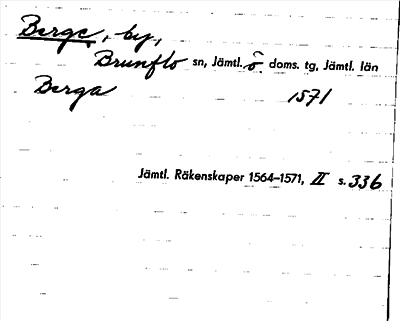 Berge, by,
Brunflo sn, Jämtl. ö doms. tg, Jämtl. län
Berga 1571
Jämtl. Räkenskaper 1564–1571, II s. 336